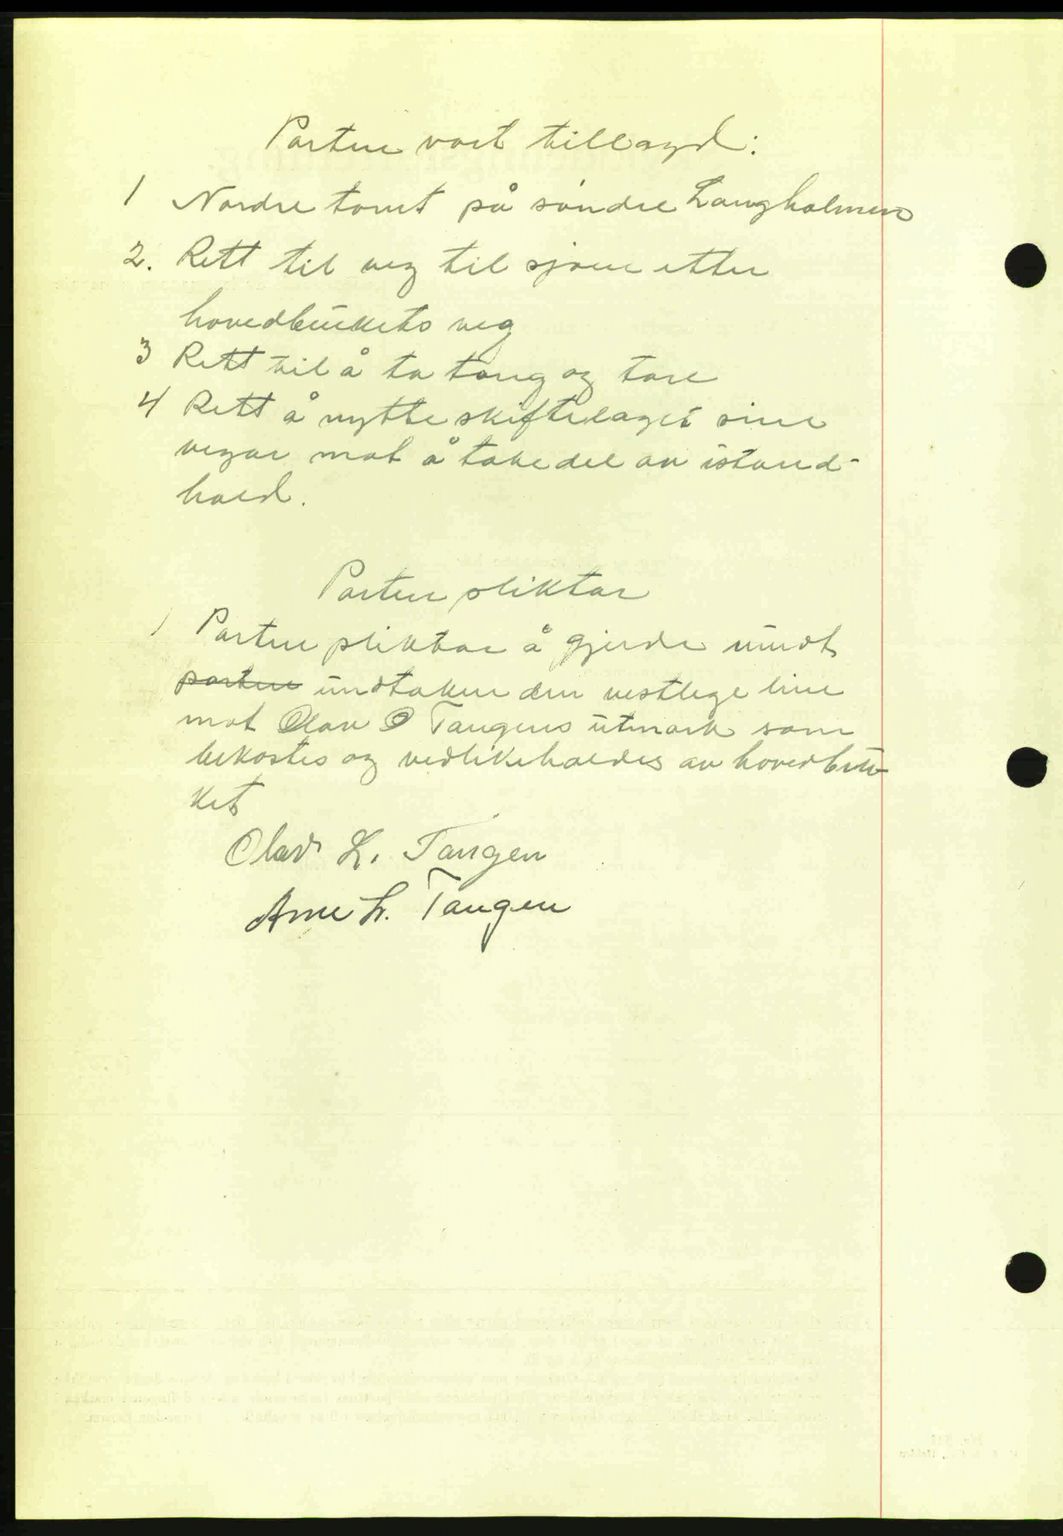 Parten vart tillagd:
1 Nordre tomt på søndre Langholmen
2. Rett til veg til sjøen etter
hovedbrukets veg
3 Rett til å ta tang og tare
4 Rett å nytte skiftelaget sine
vegar mot å take del av istand-
hald.
Parten pliktar
1 Parten pliktar å gjerde rundt
parten undtaken den vestlege line
mot Olav O Tangens utmark som
bekostes og vedlikehaldes av hovedbru-
ket
Olav L. Tangen
Arne L. Tangen